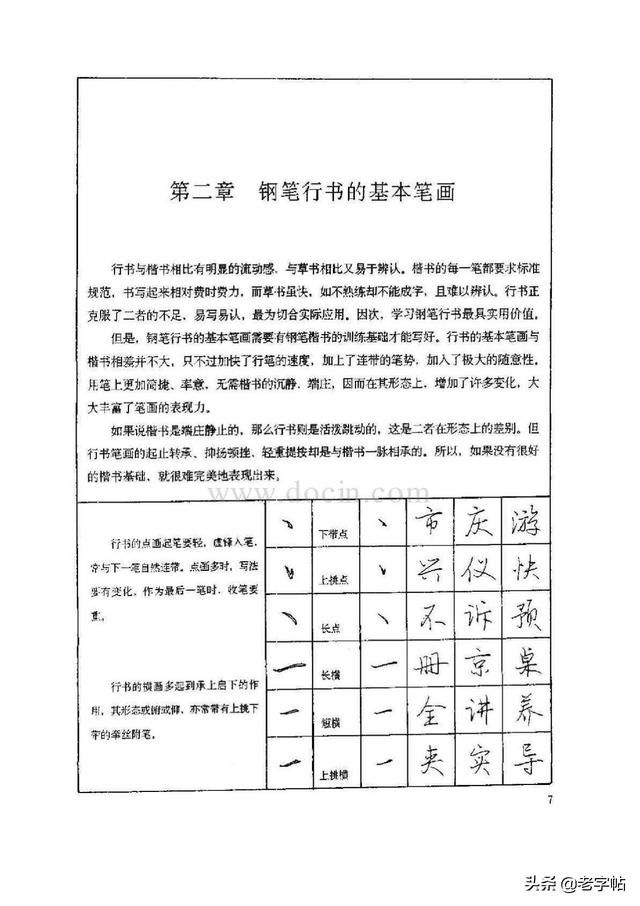 第二章　钢笔行书的基本笔画
行书与楷书相比有明显的流动感，与草书相比又易于辨认。楷书的每一笔都要求标准
规范，书写起来相对费时费力，而草书虽快，如不熟练却不能成字，且难以辨认。行书正
克服了二者的不足，易写易认，最为切合实际应用。因次，学习钢笔行书最具实用价值。
但是，钢笔行书的基本笔画需要有钢笔楷书的训练基础才能写好。行书的基本笔画与
楷书相差并不大，只不过加快了行笔的速度，加上了连带的笔势，加入了极大的随意性。
用笔上更加简捷、率意，无需楷书的沉静、端庄，因而在其形态上，增加了许多变化，大
大丰富了笔画的表现力。
如果说楷书是端庄静止的，那么行书则是活泼跳动的，这是二者在形态上的差别。但
行书笔画的起止转承、抑扬顿挫，轻重提按却是与楷书一脉相承的。所以，如果没有很好
的楷书基础、就很难完美地表现出来。
www.docin.com
行书的点画起笔要轻，虚锋入笔，
常与下一笔自然连带。点画多时，写法
要有变化，作为最后一笔时，收笔要
重。
行书的横画多起到承上启下的作
用，其形态或俯或仰，亦常带有上挑下
带的牵丝附笔。
下带点 市 庆 游
上挑点 兴 仪 快
长点 不 诉 预
长横 册 京 桌
短横 全 讲 养
上挑横 夹 实 导
7
头条 @老字帖